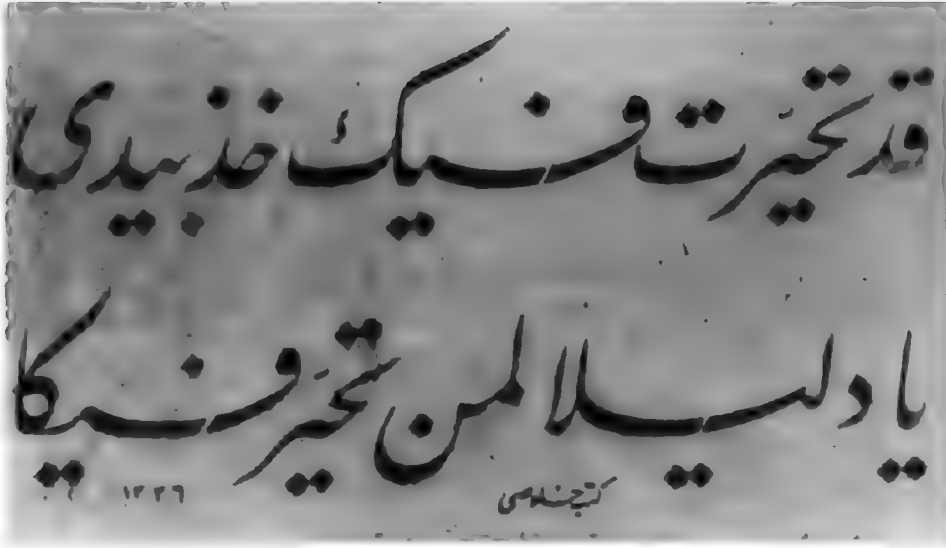 قد تحيرت فيك خذ بيدي
يا دليلا لمن تحير فيكا
كتبه خلوصي